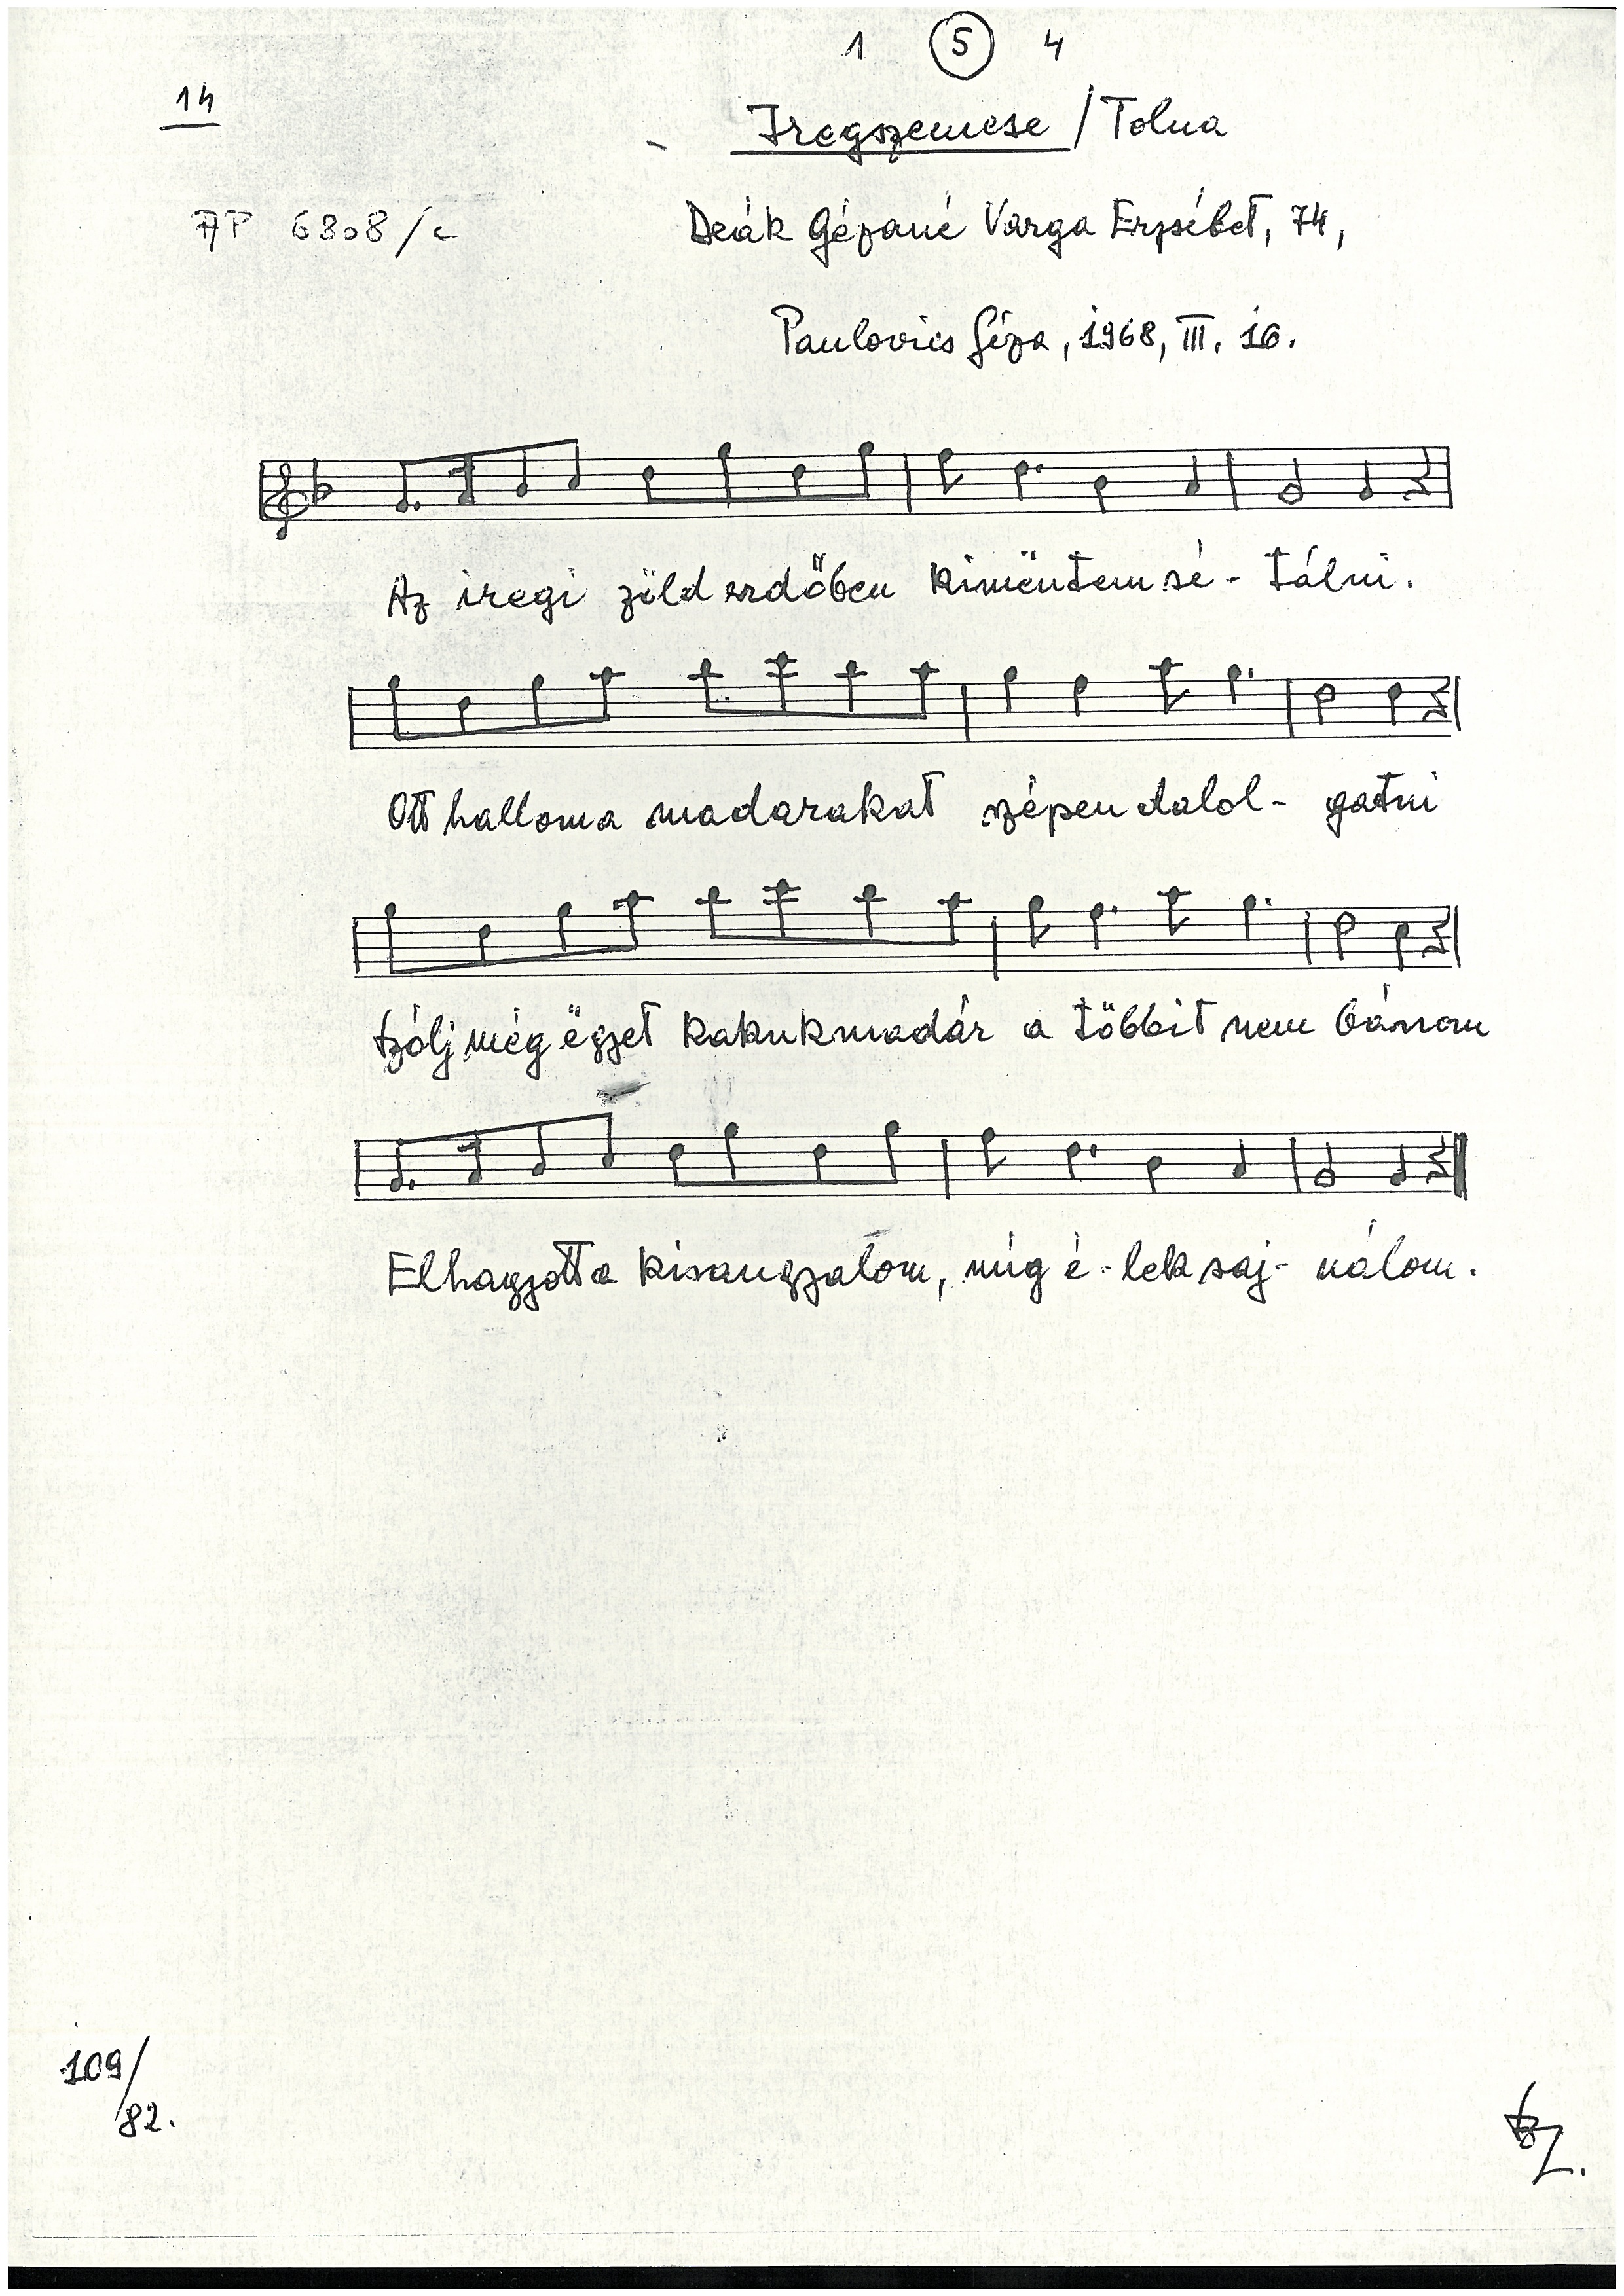 1 5 4
14
Iregszemcse / Tolna
AP 6808/c
Deák Gézáné Varga Erzsébet, 74,
Paulovics Géza, 1968, III. 16.
Az iregi zöld erdőben kimëntem sé- tálni.
Ott halloma madarakat szépen dalol- gatni
Szólj még ëgyet kakukmadár a többit nem bánom
Elhagyott a kisangyalom, míg é- lek saj- nálom.
109/
82.